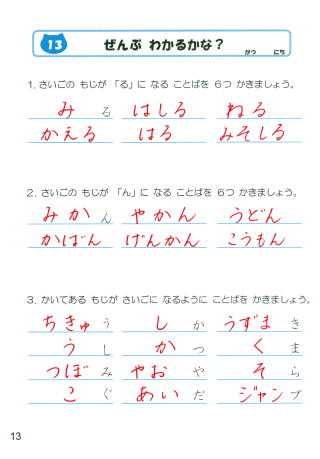 13 ぜんぶ わかるかな？
がつ にち
1. さいごの もじが 「る」に なる ことばを 6つ かきましょう。
みる はしる ねる
かえる はる みそしる
2. さいごの もじが 「ん」に なる ことばを 6つ かきましょう。
みかん やかん うどん
かばん げんかん こうもん
3. かいてある もじが さいごに なるように ことばを かきましょう。
ちきゅう しか うずまき
うし かつ くま
つぼみ やおや そら
こぐ あいだ ジャンプ
13